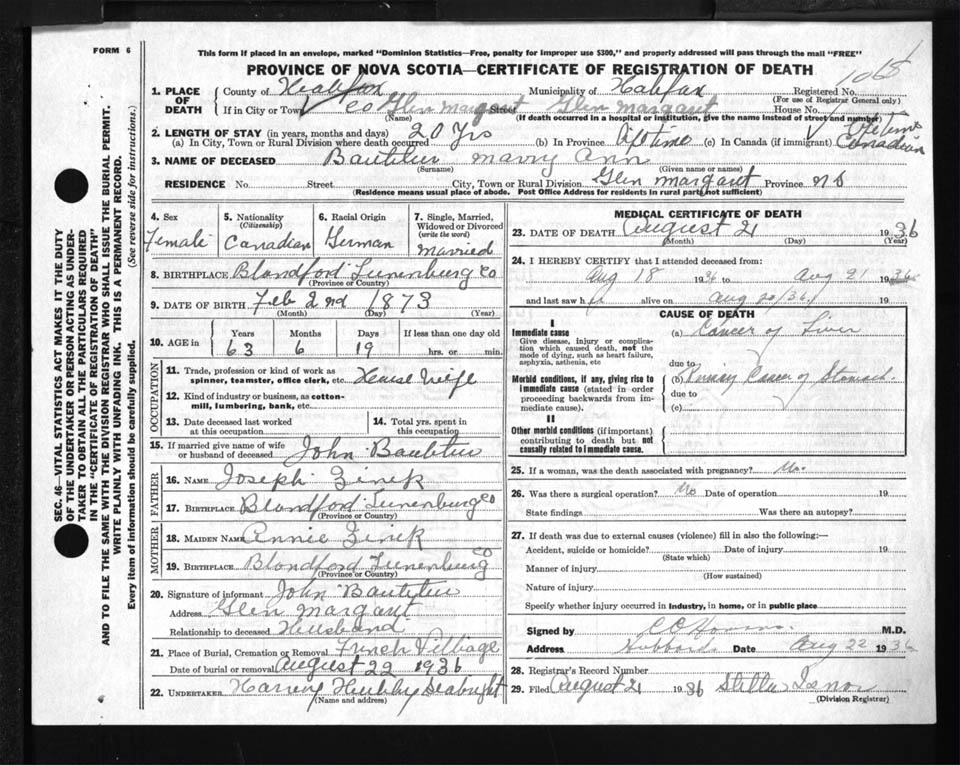 FORM 6
This form if placed in an envelope, marked "Dominion Statistics—Free, penalty for improper use $300," and properly addressed will pass through the mail "FREE"
PROVINCE OF NOVA SCOTIA—CERTIFICATE OF REGISTRATION OF DEATH
1065
1. PLACE OF DEATH
County of Halifax Municipality of Halifax Registered No.
(For use of Registrar General only)
If in City or Town Co Glen Margaret Street Glen Margaret House No.
(Name) (If death occurred in a hospital or institution, give the name instead of street and number)
2. LENGTH OF STAY (in years, months and days)
(a) In City, Town or Rural Division where death occurred 20 Yrs (b) In Province Lifetime (c) In Canada (if immigrant) Lifetime Canadian
3. NAME OF DECEASED Bautelier Marry Ann
(Surname) (Given name or names)
RESIDENCE No. Street City, Town or Rural Division Glen Margaret Province N S
(Residence means usual place of abode. Post Office Address for residents in rural parts not sufficient)
4. Sex Female
5. Nationality (Citizenship) Canadian
6. Racial Origin German
7. Single, Married, Widowed or Divorced (write the word) Married
8. BIRTHPLACE Blandford Lunenburg Co
(Province or Country)
9. DATE OF BIRTH Feb 2nd 1873
(Month) (Day) (Year)
10. AGE in Years Months Days If less than one day old
63 6 19 hrs. or min.
OCCUPATION
11. Trade, profession or kind of work as spinner, teamster, office clerk, etc. House Wife
12. Kind of industry or business, as cotton-mill, lumbering, bank, etc.
13. Date deceased last worked at this occupation
14. Total yrs. spent in this occupation
15. If married give name of wife or husband of deceased John Bautelier
FATHER
16. NAME Joseph Zinck
17. BIRTHPLACE Blandford Lunenburg Co
(Province or Country)
MOTHER
18. MAIDEN NAME Annie Zinck
19. BIRTHPLACE Blandford Lunenburg Co
(Province or Country)
20. Signature of informant John Bautelier
Address Glen Margaret
Relationship to deceased Husband
21. Place of Burial, Cremation or Removal French Village
Date of burial or removal August 22 1936
22. UNDERTAKER Harvey Hubley Seabright
(Name and address)
MEDICAL CERTIFICATE OF DEATH
23. DATE OF DEATH August 21 1936
(Month) (Day) (Year)
24. I HEREBY CERTIFY that I attended deceased from:
Aug 18 1936 to Aug 21 1936
and last saw her alive on Aug 20/36 19
CAUSE OF DEATH
I
Immediate cause
Give disease, injury or complication which caused death, not the mode of dying, such as heart failure, asphyxia, asthenia, etc
(a) Cancer of Liver
due to
Morbid conditions, if any, giving rise to immediate cause (stated in order proceeding backwards from immediate cause).
(b) Primary Cancer of Stomach
due to
(c)
II
Other morbid conditions (if important) contributing to death but not causally related to immediate cause.
25. If a woman, was the death associated with pregnancy? No
26. Was there a surgical operation? No Date of operation 19
State findings Was there an autopsy?
27. If death was due to external causes (violence) fill in also the following:—
Accident, suicide or homicide? Date of injury 19
(State which)
Manner of injury
(How sustained)
Nature of injury
Specify whether injury occurred in industry, in home, or in public place
Signed by M.D.
Address Hubbards Date Aug 22 1936
28. Registrar's Record Number
29. Filed August 21 1936 Stella Isnor
(Division Registrar)
SEC. 46—VITAL STATISTICS ACT MAKES IT THE DUTY
OF THE UNDERTAKER OR PERSON ACTING AS UNDER-
TAKER TO OBTAIN ALL THE PARTICULARS REQUIRED
IN THE "CERTIFICATE OF REGISTRATION OF DEATH"
AND TO FILE THE SAME WITH THE DIVISION REGISTRAR WHO SHALL ISSUE THE BURIAL PERMIT.
WRITE PLAINLY WITH UNFADING INK. THIS IS A PERMANENT RECORD.
Every item of information should be carefully supplied. (See reverse side for instructions.)